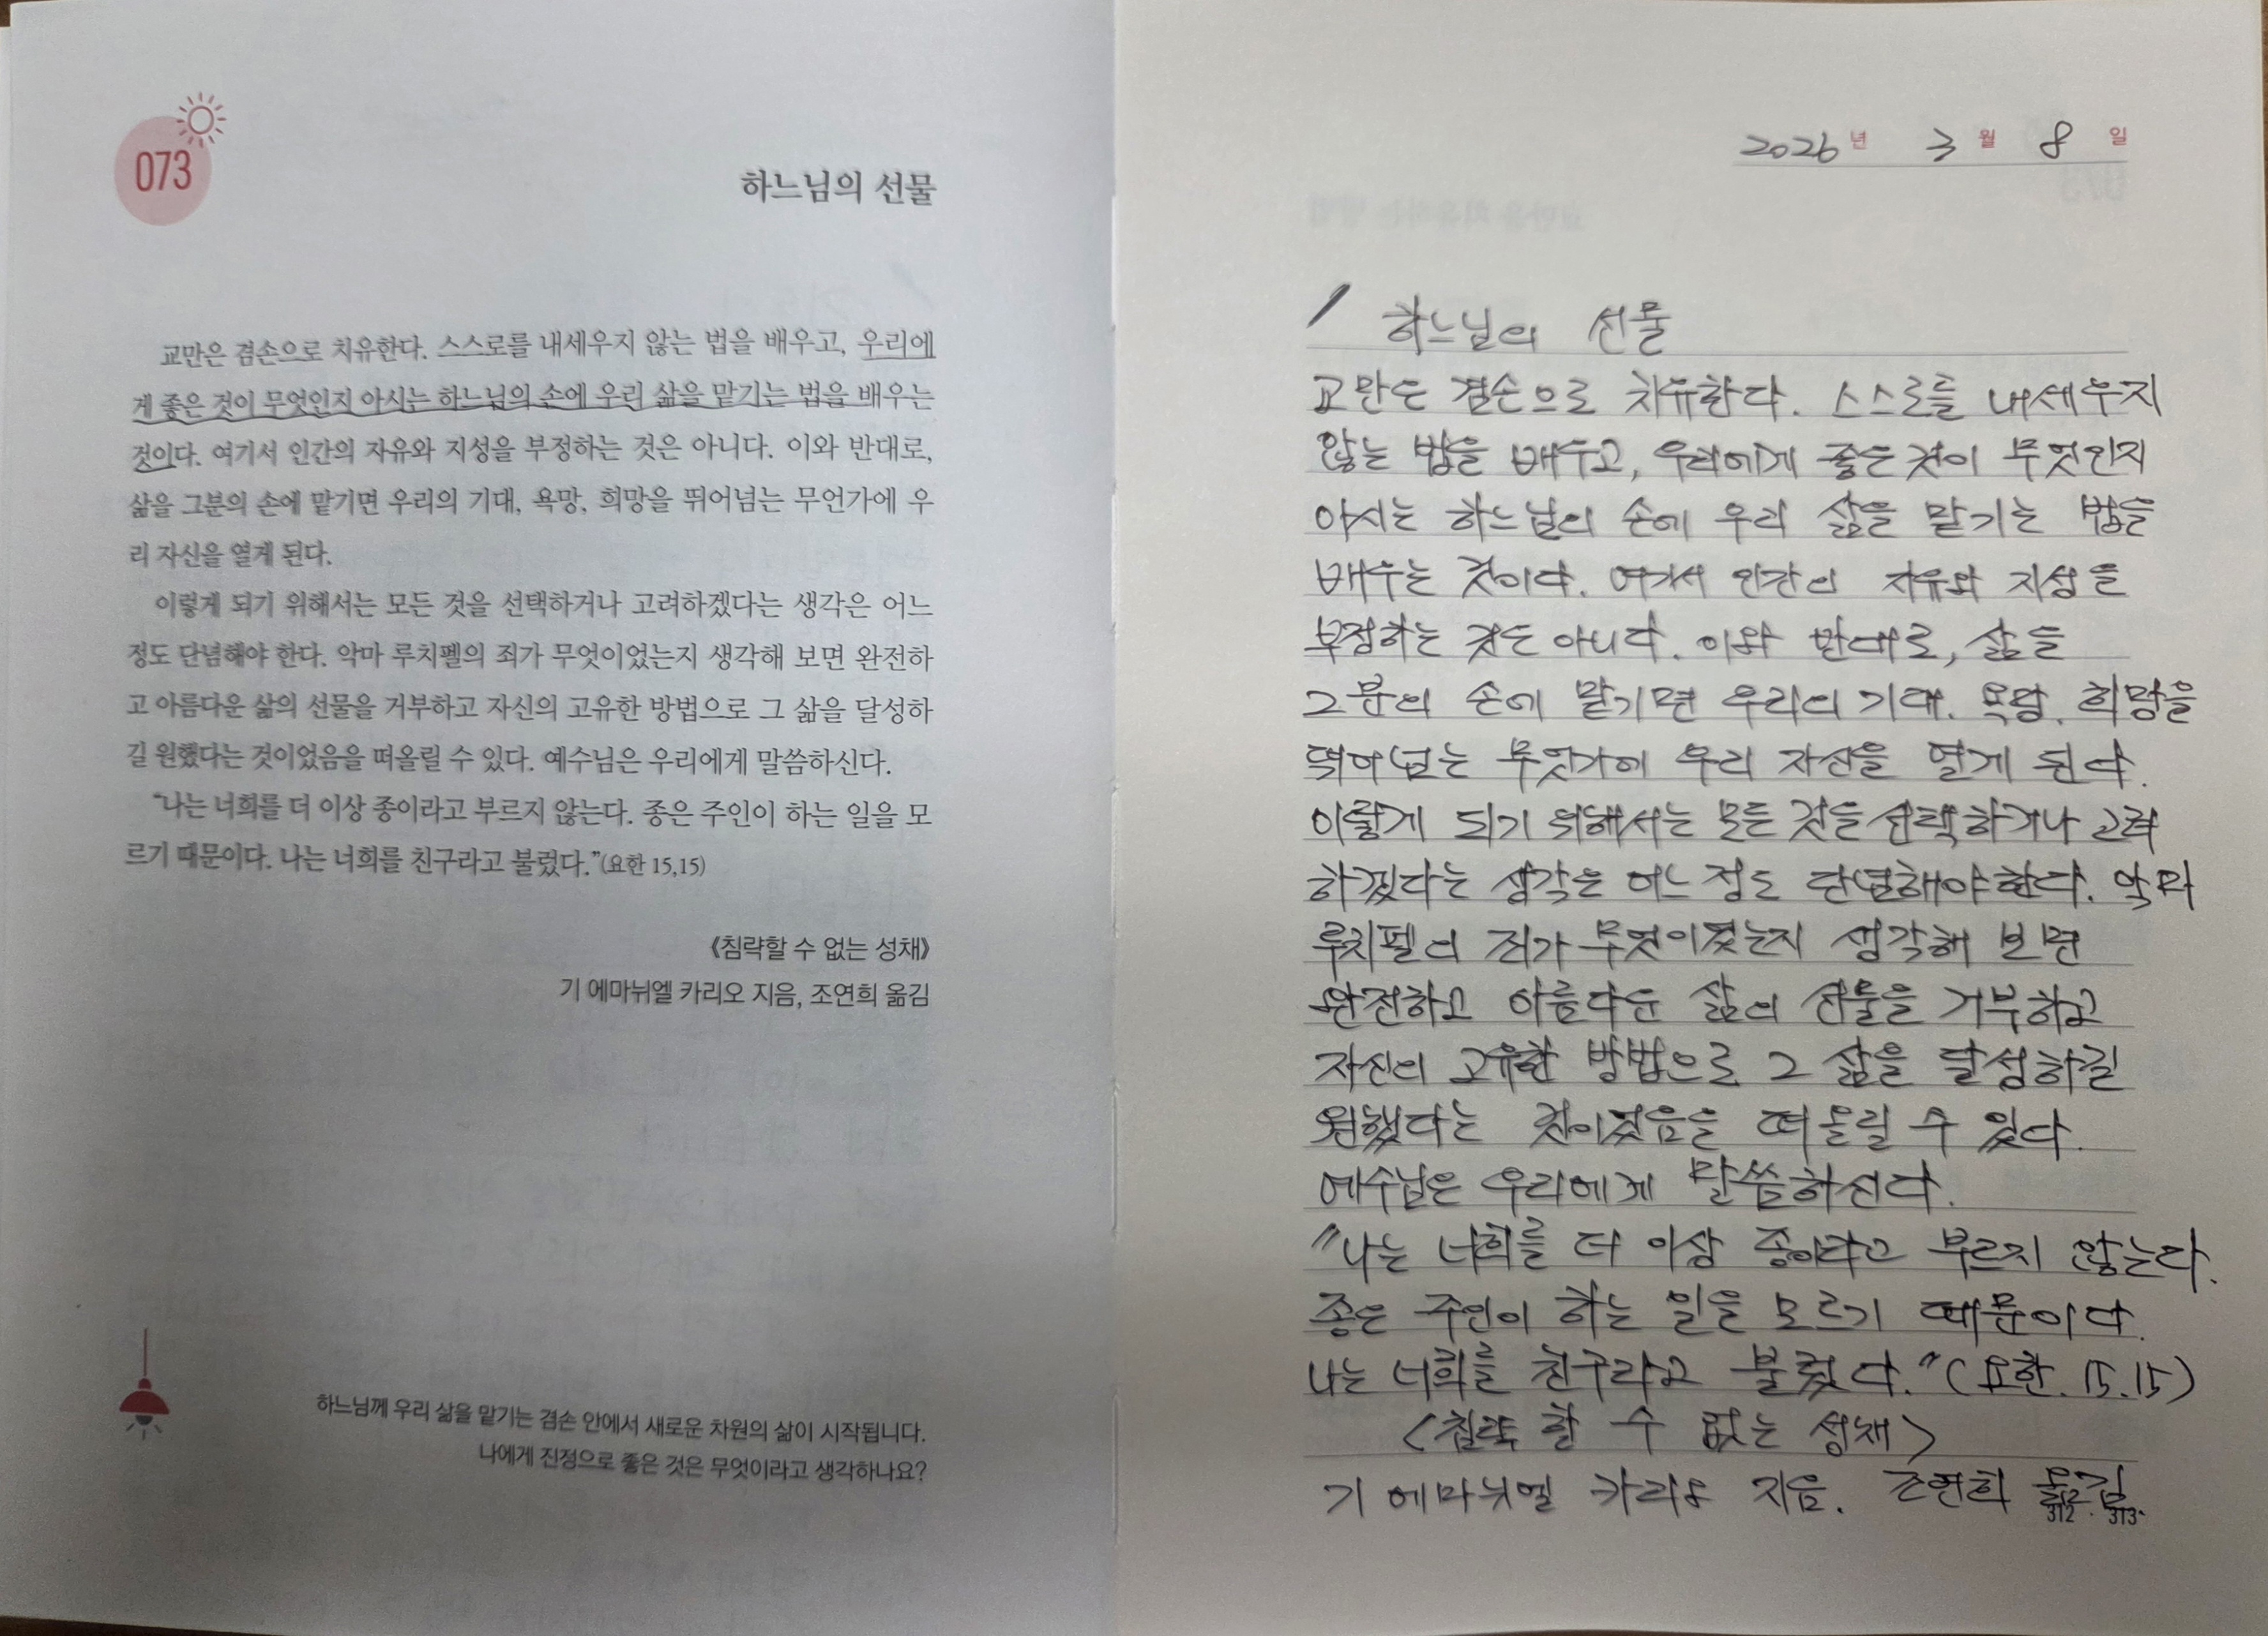 073
하느님의 선물
교만은 겸손으로 치유한다. 스스로를 내세우지 않는 법을 배우고, 우리에
게 좋은 것이 무엇인지 아시는 하느님의 손에 우리 삶을 맡기는 법을 배우는
것이다. 여기서 인간의 자유와 지성을 부정하는 것은 아니다. 이와 반대로,
삶을 그분의 손에 맡기면 우리의 기대, 욕망, 희망을 뛰어넘는 무언가에 우
리 자신을 열게 된다.
이렇게 되기 위해서는 모든 것을 선택하거나 고려하겠다는 생각은 어느
정도 단념해야 한다. 악마 루치펠의 죄가 무엇이었는지 생각해 보면 완전하
고 아름다운 삶의 선물을 거부하고 자신의 고유한 방법으로 그 삶을 달성하
길 원했다는 것이었음을 떠올릴 수 있다. 예수님은 우리에게 말씀하신다.
“나는 너희를 더 이상 종이라고 부르지 않는다. 종은 주인이 하는 일을 모
르기 때문이다. 나는 너희를 친구라고 불렀다.”(요한 15,15)
《침략할 수 없는 성채》
기 에마뉘엘 카리오 지음, 조연희 옮김
하느님께 우리 삶을 맡기는 겸손 안에서 새로운 차원의 삶이 시작됩니다.
나에게 진정으로 좋은 것은 무엇이라고 생각하나요?
2026년 3월 8일
/ 하느님의 선물
교만은 겸손으로 치유한다. 스스로를 내세우지
않는 법을 배우고, 우리에게 좋은 것이 무엇인지
아시는 하느님의 손에 우리 삶을 맡기는 법을
배우는 것이다. 여기서 인간의 자유와 지성을
부정하는 것은 아니다. 이와 반대로, 삶을
그분의 손에 맡기면 우리의 기대. 욕망. 희망을
뛰어넘는 무엇가에 우리 자신을 열게 된다.
이렇게 되기 위해서는 모든 것을 선택하거나 고려
하겠다는 생각은 어느 정도 단념해야 한다. 악마
루치펠의 죄가 무엇이었는지 생각해 보면
완전하고 아름다운 삶의 선물을 거부하고
자신의 고유한 방법으로 그 삶을 달성하길
원했다는 것이었음을 떠올릴 수 있다.
예수님은 우리에게 말씀하신다.
"나는 너희를 더 이상 종이라고 부르지 않는다.
종은 주인이 하는 일을 모르기 때문이다.
나는 너희를 친구라고 불렀다."(요한. 15.15)
<침략 할 수 없는 성채>
기 에마뉘엘 카리오 지음. 조연희 옮김.
312. 313.